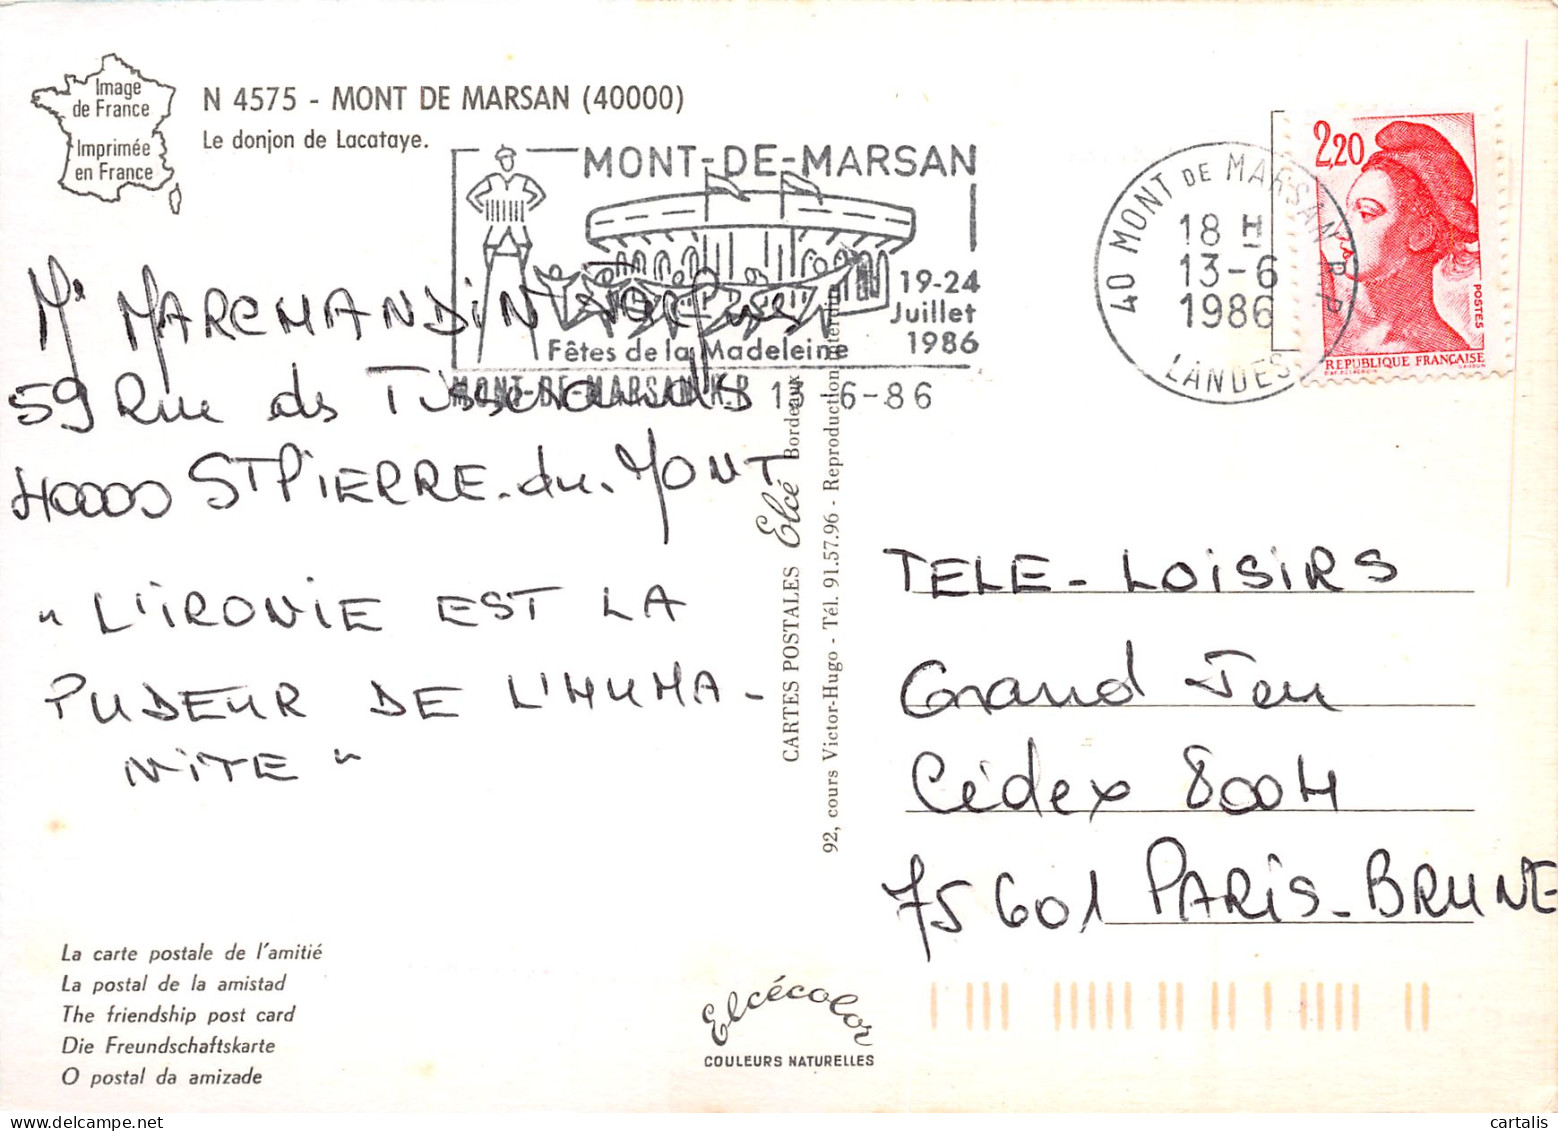 Image
de France
Imprimée
en France
N 4575 - MONT DE MARSAN (40000)
Le donjon de Lacataye.
MONT-DE-MARSAN
19-24
Juillet
1986
Fêtes de la Madeleine
MONT-DE-MARSAN R.P 13-6-86
40 MONT DE MARSAN R.P
18 H
13-6
1986
LANDES
2,20
POSTES
REPUBLIQUE FRANÇAISE
Mr MARCHANDiN
59 Rue des Tisserands
40000 ST PiERRE-du-MONT
"L'iRONiE EST LA
PUDEUR DE L'HUMA-
NiTE"
CARTES POSTALES Elcé Bordeaux
92, cours Victor-Hugo - Tél. 91.57.96 - Reproduction interdite
TELE-LOiSiRS
Grand Jeu
Cédex 8004
75601 PARiS-BRUNE
La carte postale de l'amitié
La postal de la amistad
The friendship post card
Die Freundschaftskarte
O postal da amizade
Elcécolor
COULEURS NATURELLES
cartalis